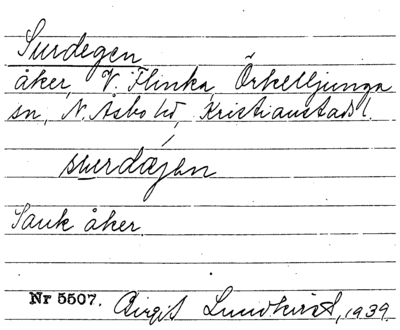 Surdegen
åker, V. Flinka, Örkelljunga
sn, N. Åsbo hd, Kristianstads l.
surdæjen
Sank åker
Nr 5507. Birgit Lundkvist, 1939.